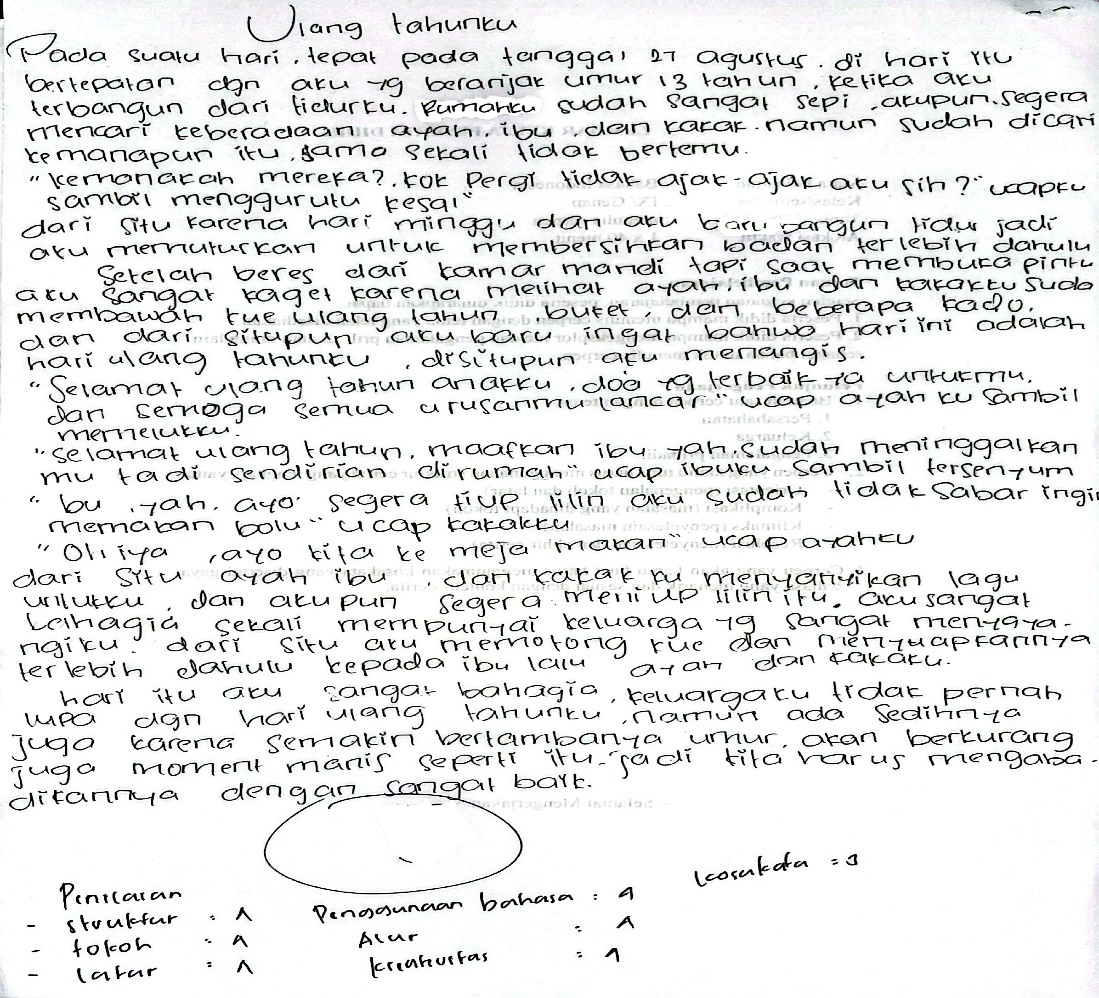 Ulang tahunku
Pada suatu hari, tepat pada tanggal 27 Agustus. di hari itu
bertepatan dgn aku yg beranjak umur 13 tahun, ketika aku
terbangun dari tidurku. Rumahku sudah sangat sepi, akupun segera
mencari keberadaan ayah, ibu, dan kakak. namun sudah dicari
kemanapun itu, sama sekali tidak bertemu.
"Kemanakah mereka?. kok pergi tidak ajak-ajak aku sih?" ucapku
sambil menggurutu kesal"
dari situ karena hari minggu dan aku baru bangun tidur jadi
aku memuturkan untuk membersihkan badan terlebih dahulu
Setelah beres dari kamar mandi tapi saat membuka pintu
aku sangat kaget karena melihat ayah, ibu dan kakakku suda
membawah kue ulang tahun, buket, dan beberapa kado.
dan dari situpun aku baru ingat bahwa hari ini adalah
hari ulang tahunku, disitupun aku menangis.
"Selamat ulang tahun anakku, doa yg terbaik ya untukmu.
dan semoga semua urusanmu lancar" ucap ayah ku sambil
memelukku.
"Selamat ulang tahun, maafkan ibu yah, sudah meninggalkan
mu tadi sendirian dirumah" ucap ibuku sambil tersenyum
"bu, yah, ayo segera tiup lilin aku sudah tidak sabar ingin
memakan bolu" ucap kakakku
"Oh iya, ayo kita ke meja makan" ucap ayahku
dari situ ayah ibu, dan kakak ku menyanyikan lagu
untukku, dan akupun segera meniup lilin itu. aku sangat
bahagia sekali mempunyai keluarga yg sangat menyaya-
ngiku. dari situ aku memotong kue dan menyuapkannya
terlebih dahulu kepada ibu lalu ayah dan kakaku.
hari itu aku sangat bahagia, keluargaku tidak pernah
lupa dgn hari ulang tahunku, namun ada sedihnya
juga karena semakin bertambanya umur, akan berkurang
juga moment manis seperti itu. jadi kita harus mengaba-
dikannya dengan sangat baik.
Penilaian
- struktur : 1
- tokoh : 1
- latar : 1
Penggunaan bahasa : 1
Alur : 1
kreativitas : 1
kosakata : 3